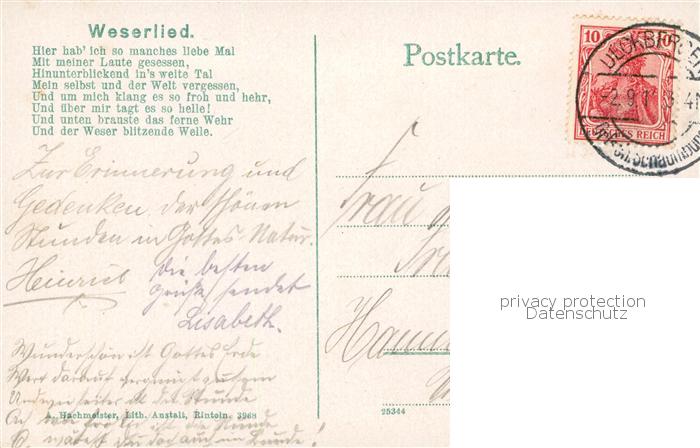 Weserlied.
Hier hab' ich so manches liebe Mal
Mit meiner Laute gesessen,
Hinunterblickend in's weite Tal
Mein selbst und der Welt vergessen,
Und um mich klang es so froh und hehr,
Und über mir tagt es so helle!
Und unten brauste das ferne Wehr
Und der Weser blitzende Welle.
Postkarte.
10 10
DEUTSCHES REICH
Zur Erinnerung und
Gedenken der schönen
Stunden in Gottes Natur.
Heinrich
die besten
Grüße sendet
Lisabeth.
Wunderschön ist Gottes Erde
Wert darauf vergnügt zu sein
A. Hachmeister, Lith. Anstalt, Rinteln. 3968
Frau
25344
privacy protection
Datenschutz